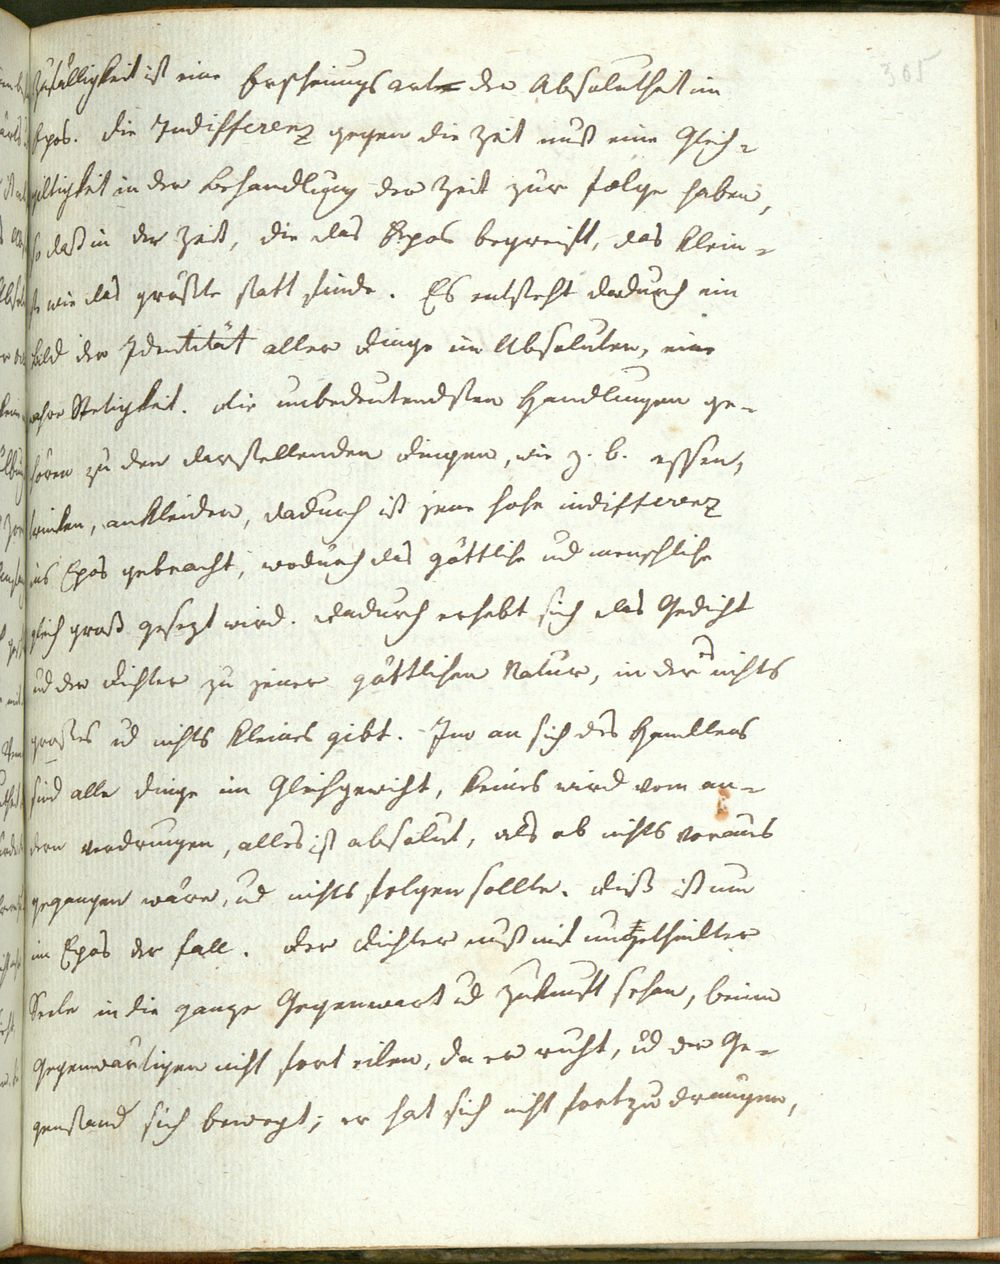 305
Zufälligkeit ist eine Erscheinungsart der Absolutheit im
Epos. Die Indifferenz gegen die Zeit muß eine Gleich-
giltigkeit in der Behandlung der Zeit zur folge haben,
so daß in der Zeit, die das Epos begreift, das klein-
ste wie das größte statt finde. Es entsteht dadurch ein
bild der Identität aller Dinge im Absoluten, eine
wahre Stetigkeit. Die unbedeutendsten Handlungen ge-
hören zu den darstellenden Dingen, wie z. b. essen,
trinken, ankleiden, dadurch ist jene hohe indifferenz
ins Epos gebracht, wodurch das göttliche ud menschliche
gleich groß gesezt wird. Dadurch erhebt sich das Gedicht
ud der Dichter zu jener göttlichen Natur, in der es nichts
großes ud nichts kleines gibt. Im an sich des Handlens
sind alle Dinge im Gleichgewicht, keines wird vom an-
dern verdrungen, alles ist absolut, als ob nichts voraus
gegangen wäre, ud nichts folgen sollte. Diß ist nun
im Epos der fall. Der Dichter muß mit ungetheilter
Seele in die ganze Gegenwart ud Zukunft sehen, beim
Gegenwärtigen nicht fort eilen, da er ruht, ud der Ge-
genstand sich bewegt; er hat sich nicht fortzudrängen,